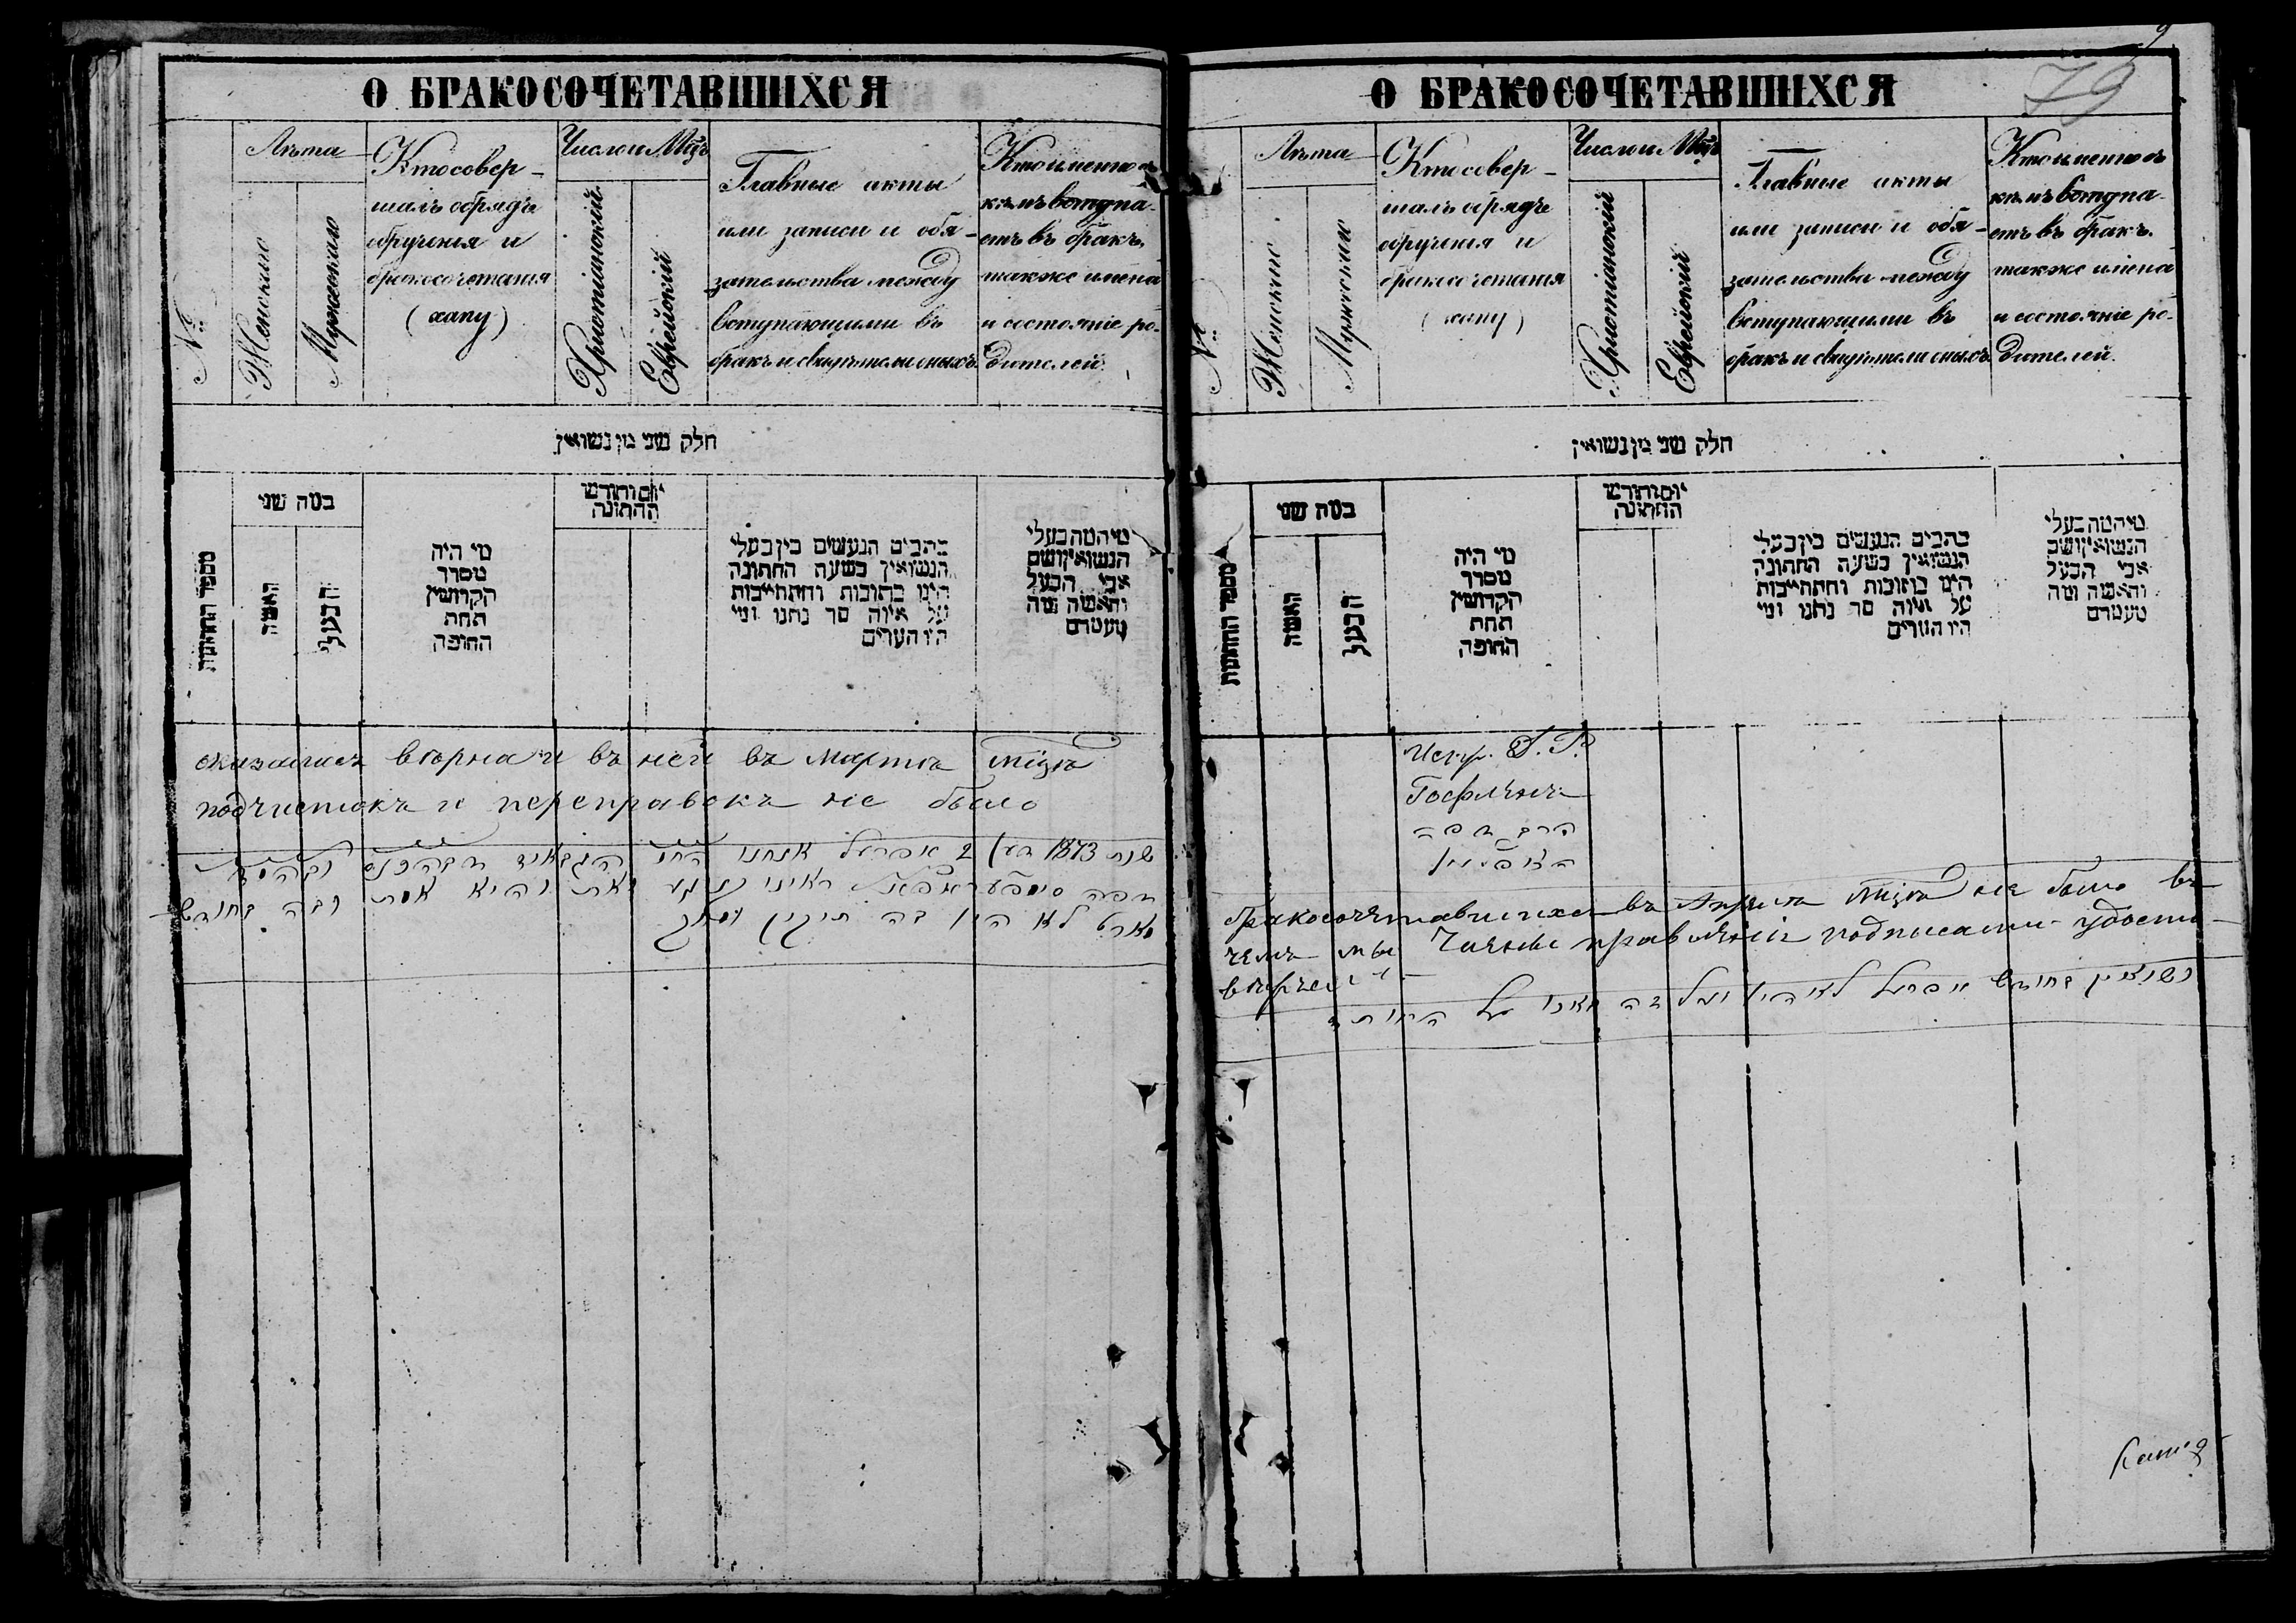 О БРАКОСОЧЕТАВШИХСЯ
№
Лѣта
Женскаго
Мужескаго
Кто совер-
шалъ обрядъ
обрученія и
бракосочетанія
(хапу)
Число и Мцъ
Христіанскій
Еврейскій
Главные акты
или записи и обя-
зательства между
вступающими въ
бракъ и свидѣтели оныхъ
Кто именно съ
кѣмъ вступа-
етъ въ бракъ.
также имена
и состояніе ро-
дителей.
חלק שני מן נשואין
מספר החתונות
במה שני
האשה
הבעל
מי היה
מסדר
הקדושין
תחת
החופה
יום וחודש
החתונה
כתבים הנעשים בין בעלי
הנשואין בשעת החתונה
היינו כתובות והתחייבות
על איזה סך נתנו ומי
היו העדים
מי המה בעלי
הנשואין ושם
אבי הבעל
והאשה ומה
מעמדם
оказалась вѣрна и въ ней въ мартѣ мцѣ
подчистокъ и переправокъ не было
שנת 1873 2 אפריל אנחנו
מארט לא היו בה תיקון
9
79
О БРАКОСОЧЕТАВШИХСЯ
№
Лѣта
Женскаго
Мужескаго
Кто совер-
шалъ обрядъ
обрученія и
бракосочетанія
(хапу)
Число и Мцъ
Христіанскій
Еврейскій
Главные акты
или записи и обя-
зательства между
вступающими въ
бракъ и свидѣтели оныхъ
Кто именно съ
кѣмъ вступа-
етъ въ бракъ.
также имена
и состояніе ро-
дителей.
חלק שני מן נשואין
מספר החתונות
במה שני
האשה
הבעל
מי היה
מסדר
הקדושין
תחת
החופה
יום וחודש
החתונה
כתבים הנעשים בין בעלי
הנשואין בשעת החתונה
היינו כתובות והתחייבות
על איזה סך נתנו ומי
היו העדים
מי המה בעלי
הנשואין ושם
אבי הבעל
והאשה ומה
מעמדם
Испр. Д. Р.
Гофманъ
הרב מפה
האפמאן
бракосочетавшихся въ Апрѣлѣ мцѣ не было въ
чемъ мы Члены правленія подписами удосто-
вѣряемъ
נשואין בחודש אפריל לא היו ועל זה אנו